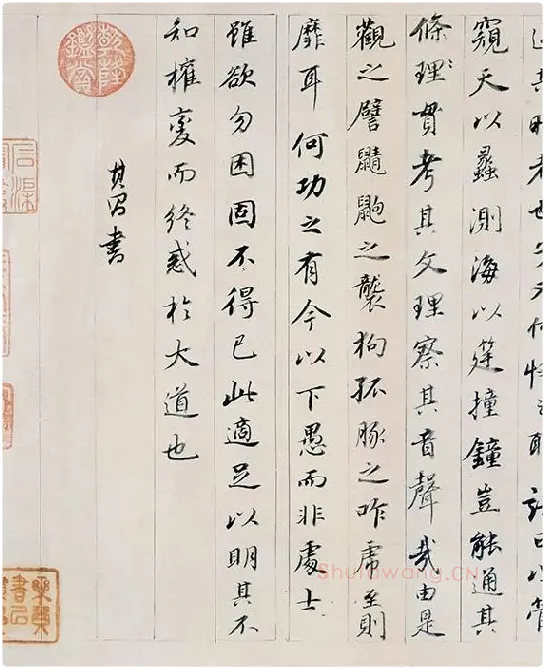 其時者也子又何怪之耶語曰以管
窺天以蠡測海以筳撞鐘豈能通其
條理貫考其文理察其音聲哉由是
觀之譬鼱鼩之襲狗孤豚之咋虎至則
靡耳何功之有今以下愚而非處士
雖欲勿困固不得已此適足以明其不
知權變而終惑於大道也
其昌書
乾隆鑑賞
Shufawang.CN